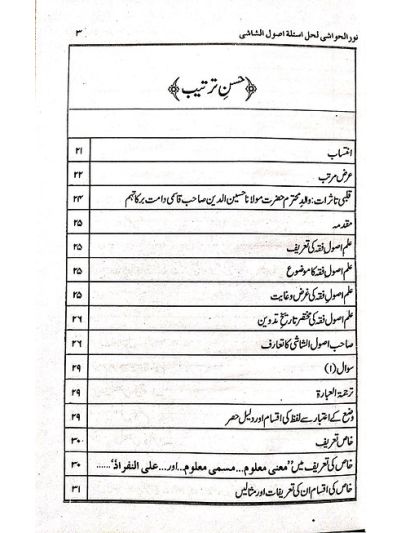 نور الحواشی لحل اسئلة اصول الشاشی ۳
﴿حسنِ ترتیب﴾
انتساب ۲۱
عرض مرتب ۲۲
قلبی تاثرات: والدِ محترم حضرت مولانا حسین الدین صاحب قاسمی دامت برکاتہم ۲۴
مقدمہ ۲۵
علم اصول فقہ کی تعریف ۲۵
علم اصول فقہ کا موضوع ۲۵
علم اصول فقہ کی غرض و غایت ۲۵
علم اصول فقہ کی مختصر تاریخ تدوین ۲۶
صاحب اصول الشاشی کا تعارف ۲۶
سوال (۱) ۲۹
ترجمۃ العبارة ۲۹
وضع کے اعتبار سے لفظ کی اقسام اور دلیل حصر ۲۹
خاص تعریف ۳۰
خاص کی تعریف میں "معنی معلوم... مسمی معلوم... اور... علی النفراد"...... ۳۰
خاص کی اقسام ان کی تعریفات اور مثالیں ۳۱